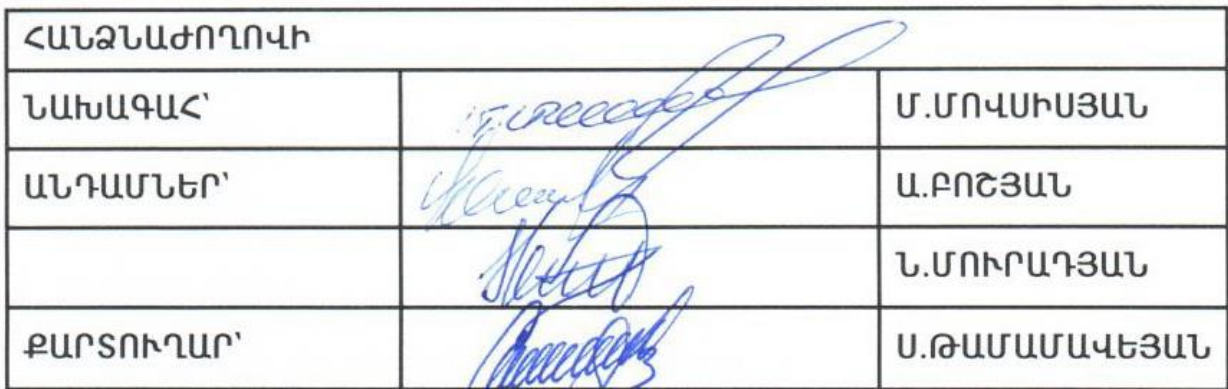 ՀԱՆՁՆԱԺՈՂՈՎԻ
ՆԱԽԱԳԱՀ՝ Մ.ՄՈՎՍԻՍՅԱՆ
ԱՆԴԱՄՆԵՐ՝ Ա.ԲՈՇՅԱՆ
Ն.ՄՈՒՐԱԴՅԱՆ
ՔԱՐՏՈՒՂԱՐ՝ Ս.ԹԱՄԱՄԱՎԵՅԱՆ